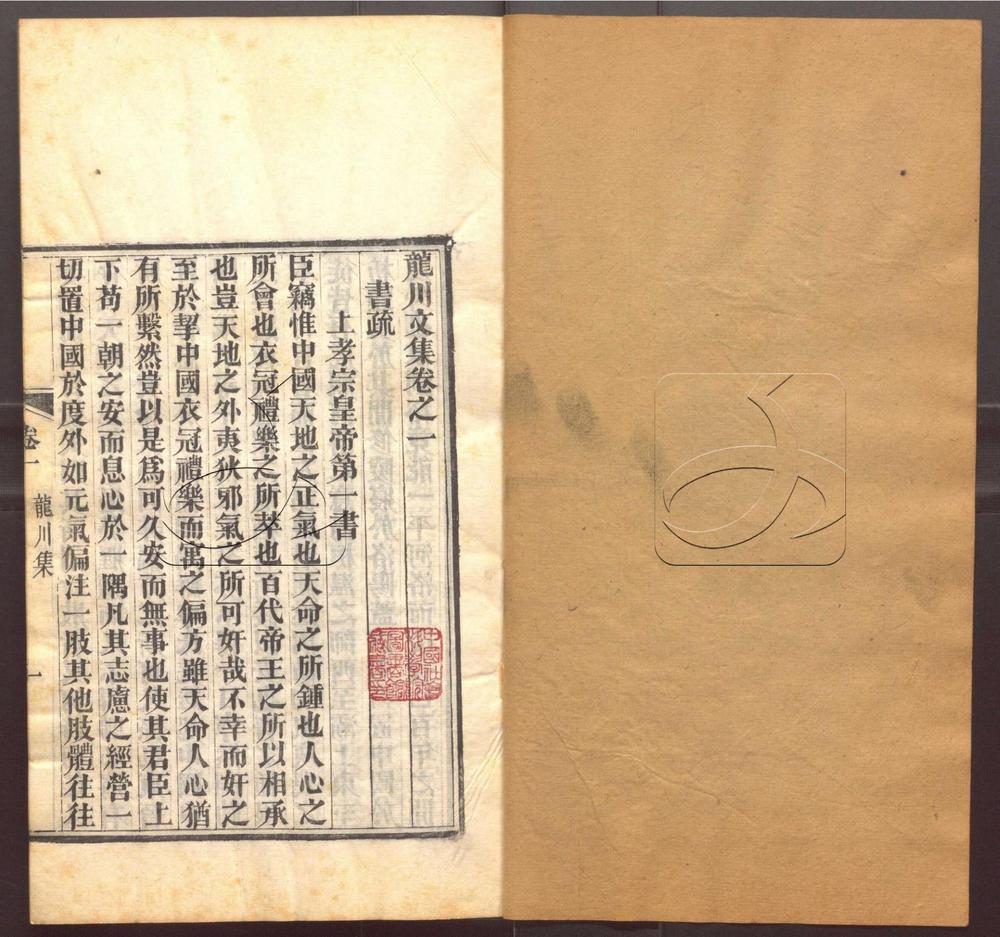 龍川文集卷之一
書疏
上孝宗皇帝第一書
臣竊惟中國天地之正氣也天命之所鍾也人心之
所會也衣冠禮樂之所萃也百代帝王之所以相承
也豈天地之外夷狄邪氣之所可奸哉不幸而奸之
至於挈中國衣冠禮樂而寓之偏方雖天命人心猶
有所繫然豈以是爲可久安而無事也使其君臣上
下苟一朝之安而息心於一隅凡其志慮之經營一
切置中國於度外如元氣偏注一肢其他肢體往往
卷一
龍川集
一